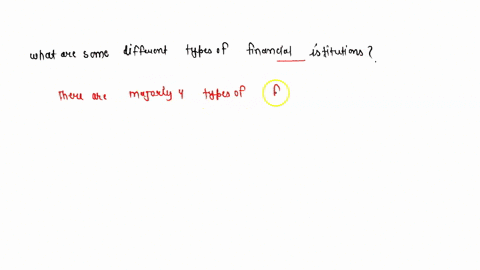 what are some different types of financial istitutions?
There are majorly 4 types of f